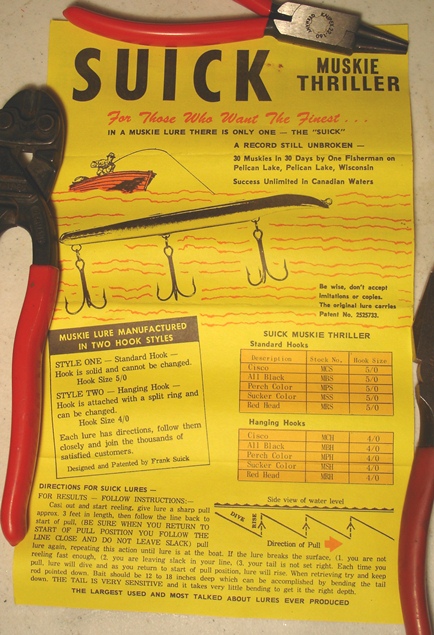 SUICK
MUSKIE
THRILLER
For Those Who Want The Finest . . .
IN A MUSKIE LURE THERE IS ONLY ONE — THE "SUICK"
A RECORD STILL UNBROKEN —
30 Muskies in 30 Days by One Fisherman on
Pelican Lake, Pelican Lake, Wisconsin
Success Unlimited in Canadian Waters
Be wise, don't accept
imitations or copies.
The original lure carries
Patent No. 2525733.
MUSKIE LURE MANUFACTURED
IN TWO HOOK STYLES
STYLE ONE — Standard Hook —
Hook is solid and cannot be changed.
Hook Size 5/0
STYLE TWO — Hanging Hook —
Hook is attached with a split ring and
can be changed.
Hook Size 4/0
Each lure has directions, follow them
closely and join the thousands of
satisfied customers.
Designed and Patented by Frank Suick
SUICK MUSKIE THRILLER
Standard Hooks
Description Stock No. Hook Size
Cisco MCS 5/0
All Black MBS 5/0
Perch Color MPS 5/0
Sucker Color MSS 5/0
Red Head MRS 5/0
Hanging Hooks
Cisco MCH 4/0
All Black MBH 4/0
Perch Color MPH 4/0
Sucker Color MSH 4/0
Red Head MRH 4/0
DIRECTIONS FOR SUICK LURES —
FOR RESULTS — FOLLOW INSTRUCTIONS:—
Cast out and start reeling, give lure a sharp pull
approx. 3 feet in length, then follow the line back to
start of pull, (BE SURE WHEN YOU RETURN TO
START OF PULL POSITION YOU FOLLOW THE
LINE CLOSE AND DO NOT LEAVE SLACK) pull
lure again, repeating this action until lure is at the boat. If the lure breaks the surface, (1. you are not
reeling fast enough, (2. you are leaving slack in your line, (3. your tail is not set right. Each time you
pull, lure will dive and as you return to start of pull position, lure will rise. When retrieving try and keep
rod pointed down. Bait should be 12 to 18 inches deep which can be accomplished by bending the tail
down. THE TAIL IS VERY SENSITIVE and it takes very little bending to get it the right depth.
Side view of water level
DIVE
RISE
Direction of Pull
THE LARGEST USED AND MOST TALKED ABOUT LURES EVER PRODUCED